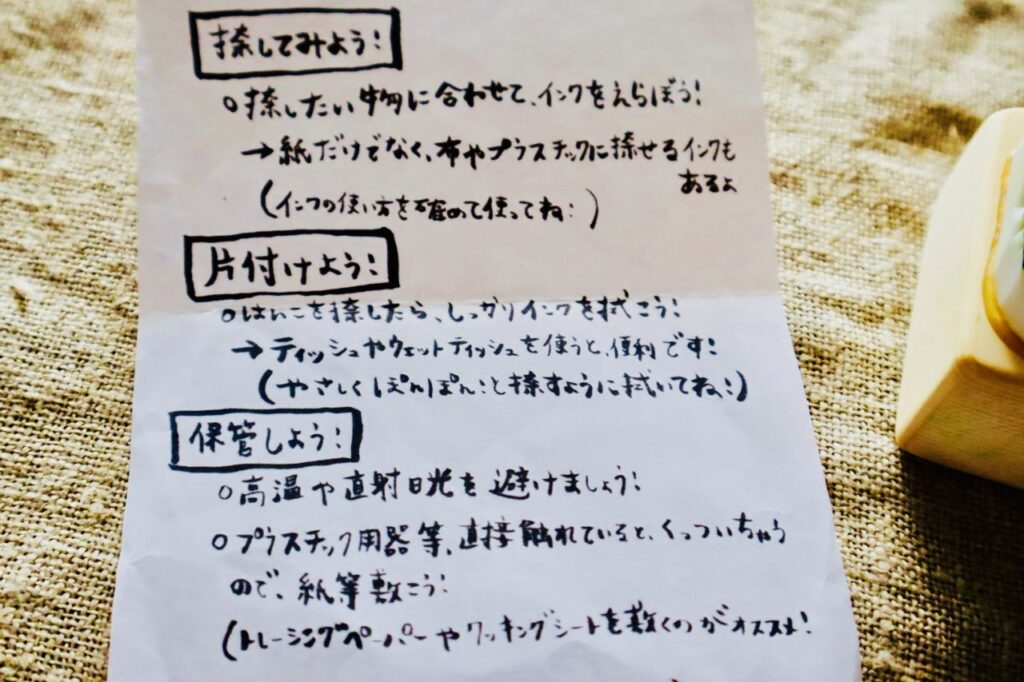 捺してみよう!
○捺したい物に合わせて、インクをえらぼう!
→紙だけでなく、布やプラスチックに捺せるインクも
あるよ
(インクの使い方を確めて使ってね!)
片付けよう!
○はんこを捺したら、しっかりインクを拭こう!
→ティッシュやウェットティッシュを使うと、便利です!
(やさしくぽんぽんと捺すように拭いてね!)
保管しよう!
○高温や直射日光を避けましょう!
○プラスチック用器等、直接触れていると、くっついちゃう
ので、紙等敷こう!
(トレーシングペーパーやクッキングシートを敷くのがオススメ!